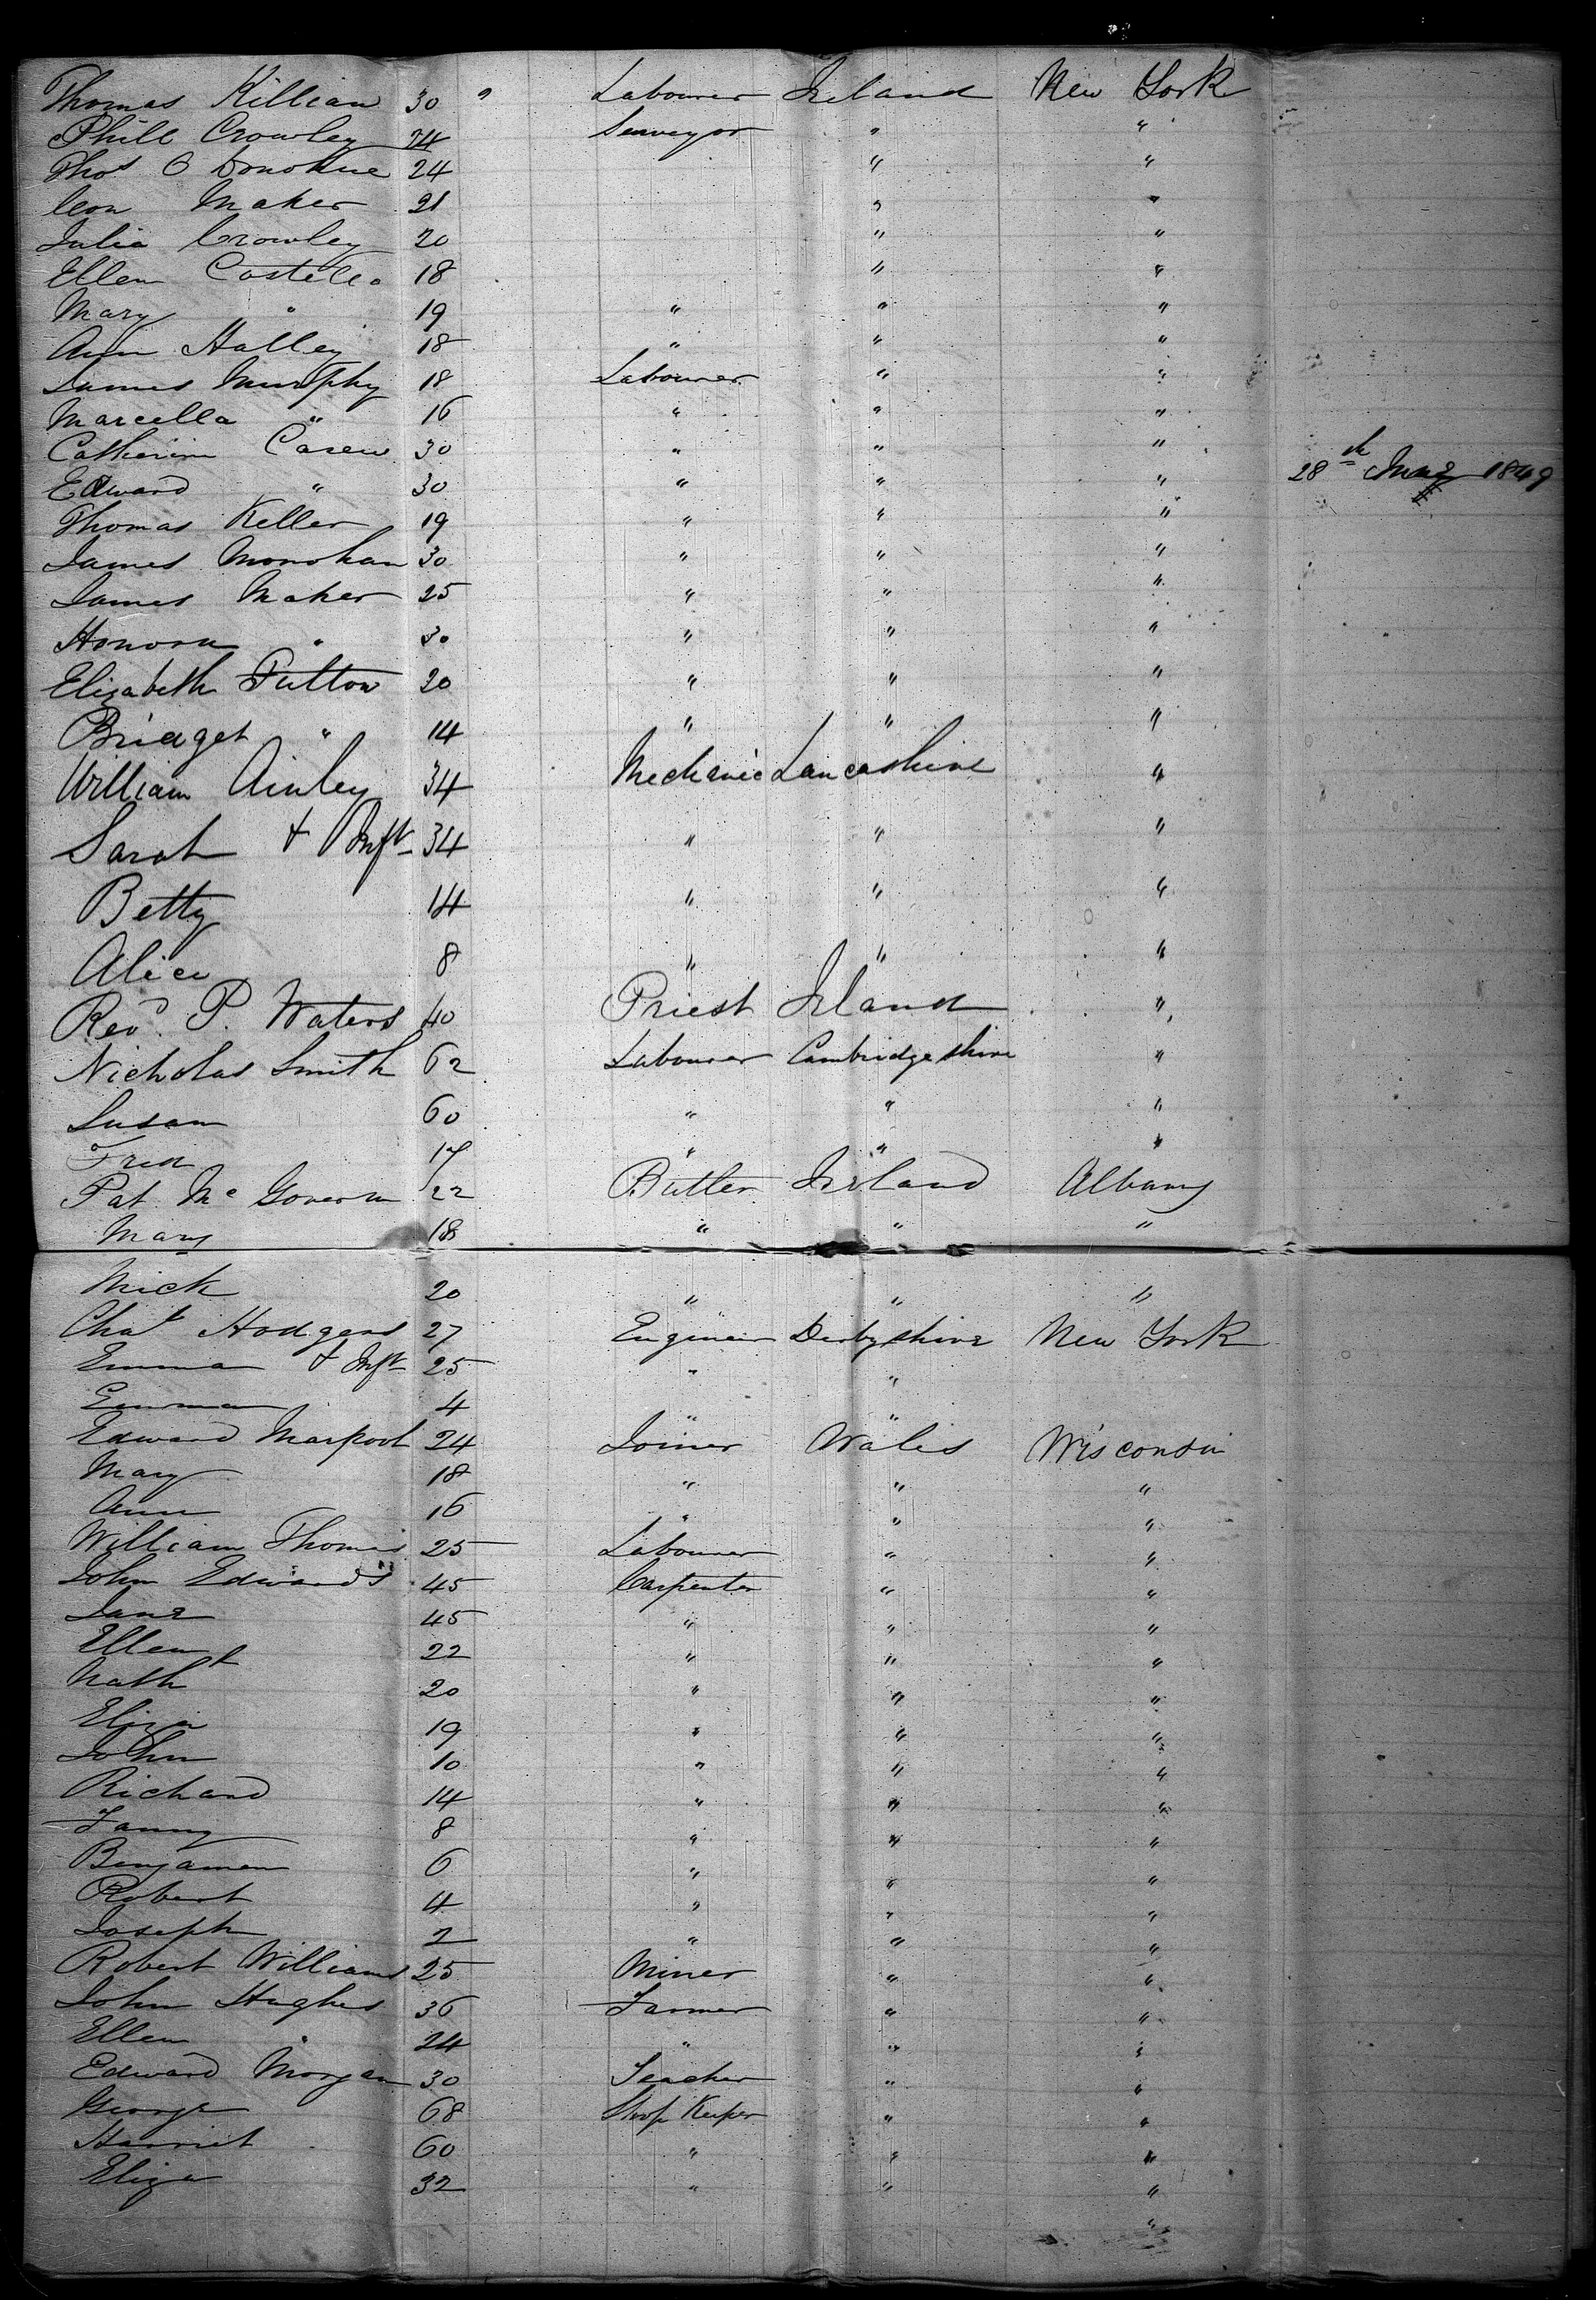 Thomas Killian 30 " Labourer Ireland New York
Phill Crowley 24 Surveyor " "
Thos O Donohue 24 " "
Con Maher 21 " "
Julia Crowley 20 " "
Ellen Costello 18 " "
Mary " 19 " " "
Ann Halley 18 " " "
James Murphy 18 Labourer " "
Marcella " 16 " " "
Catherine Casew 30 " " "
Edward " 30 " " " 28th May 1849
Thomas Keller 19 " " "
James Monohan 30 " " "
James Maher 25 " " "
Honora " 30 " " "
Elizabeth Fulton 20 " " "
Bridget " 14 " " "
William Ainley 34 Mechanic Lancashire "
Sarah & Inft 34 " " "
Betty 14 " " "
Alice 8 " " "
Revd. P. Waters 40 Priest Ireland "
Nicholas Smith 62 Labourer Cambridgeshire "
Susan 60 " " "
Fred 17 " " "
Pat Mc Govern 22 Butler Ireland Albany
Mary 18 " " "
Mick 20 " " "
Chas Hodgens 27 Engineer Derbyshire New York
Emma & Inft 25 " "
Emma 4 " "
Edward Marpool 24 Joiner Wales Wisconsin
Mary 18 " " "
Ann 16 " " "
William Thomas 25 Labourer " "
John Edwards 45 Carpenter " "
Jane 45 " " "
Ellen 22 " " "
Nathl 20 " " "
Eliza 19 " " "
John 10 " " "
Richard 14 " " "
Fanny 8 " " "
Benjamen 6 " " "
Robert 4 " " "
Joseph 2 " " "
Robert Williams 25 Miner " "
John Hughes 36 Farmer " "
Ellen " 24 " " "
Edward Morgan 30 Teacher " "
George 68 Shop Keeper " "
Harriet 60 " " "
Eliza 32 " " "
"